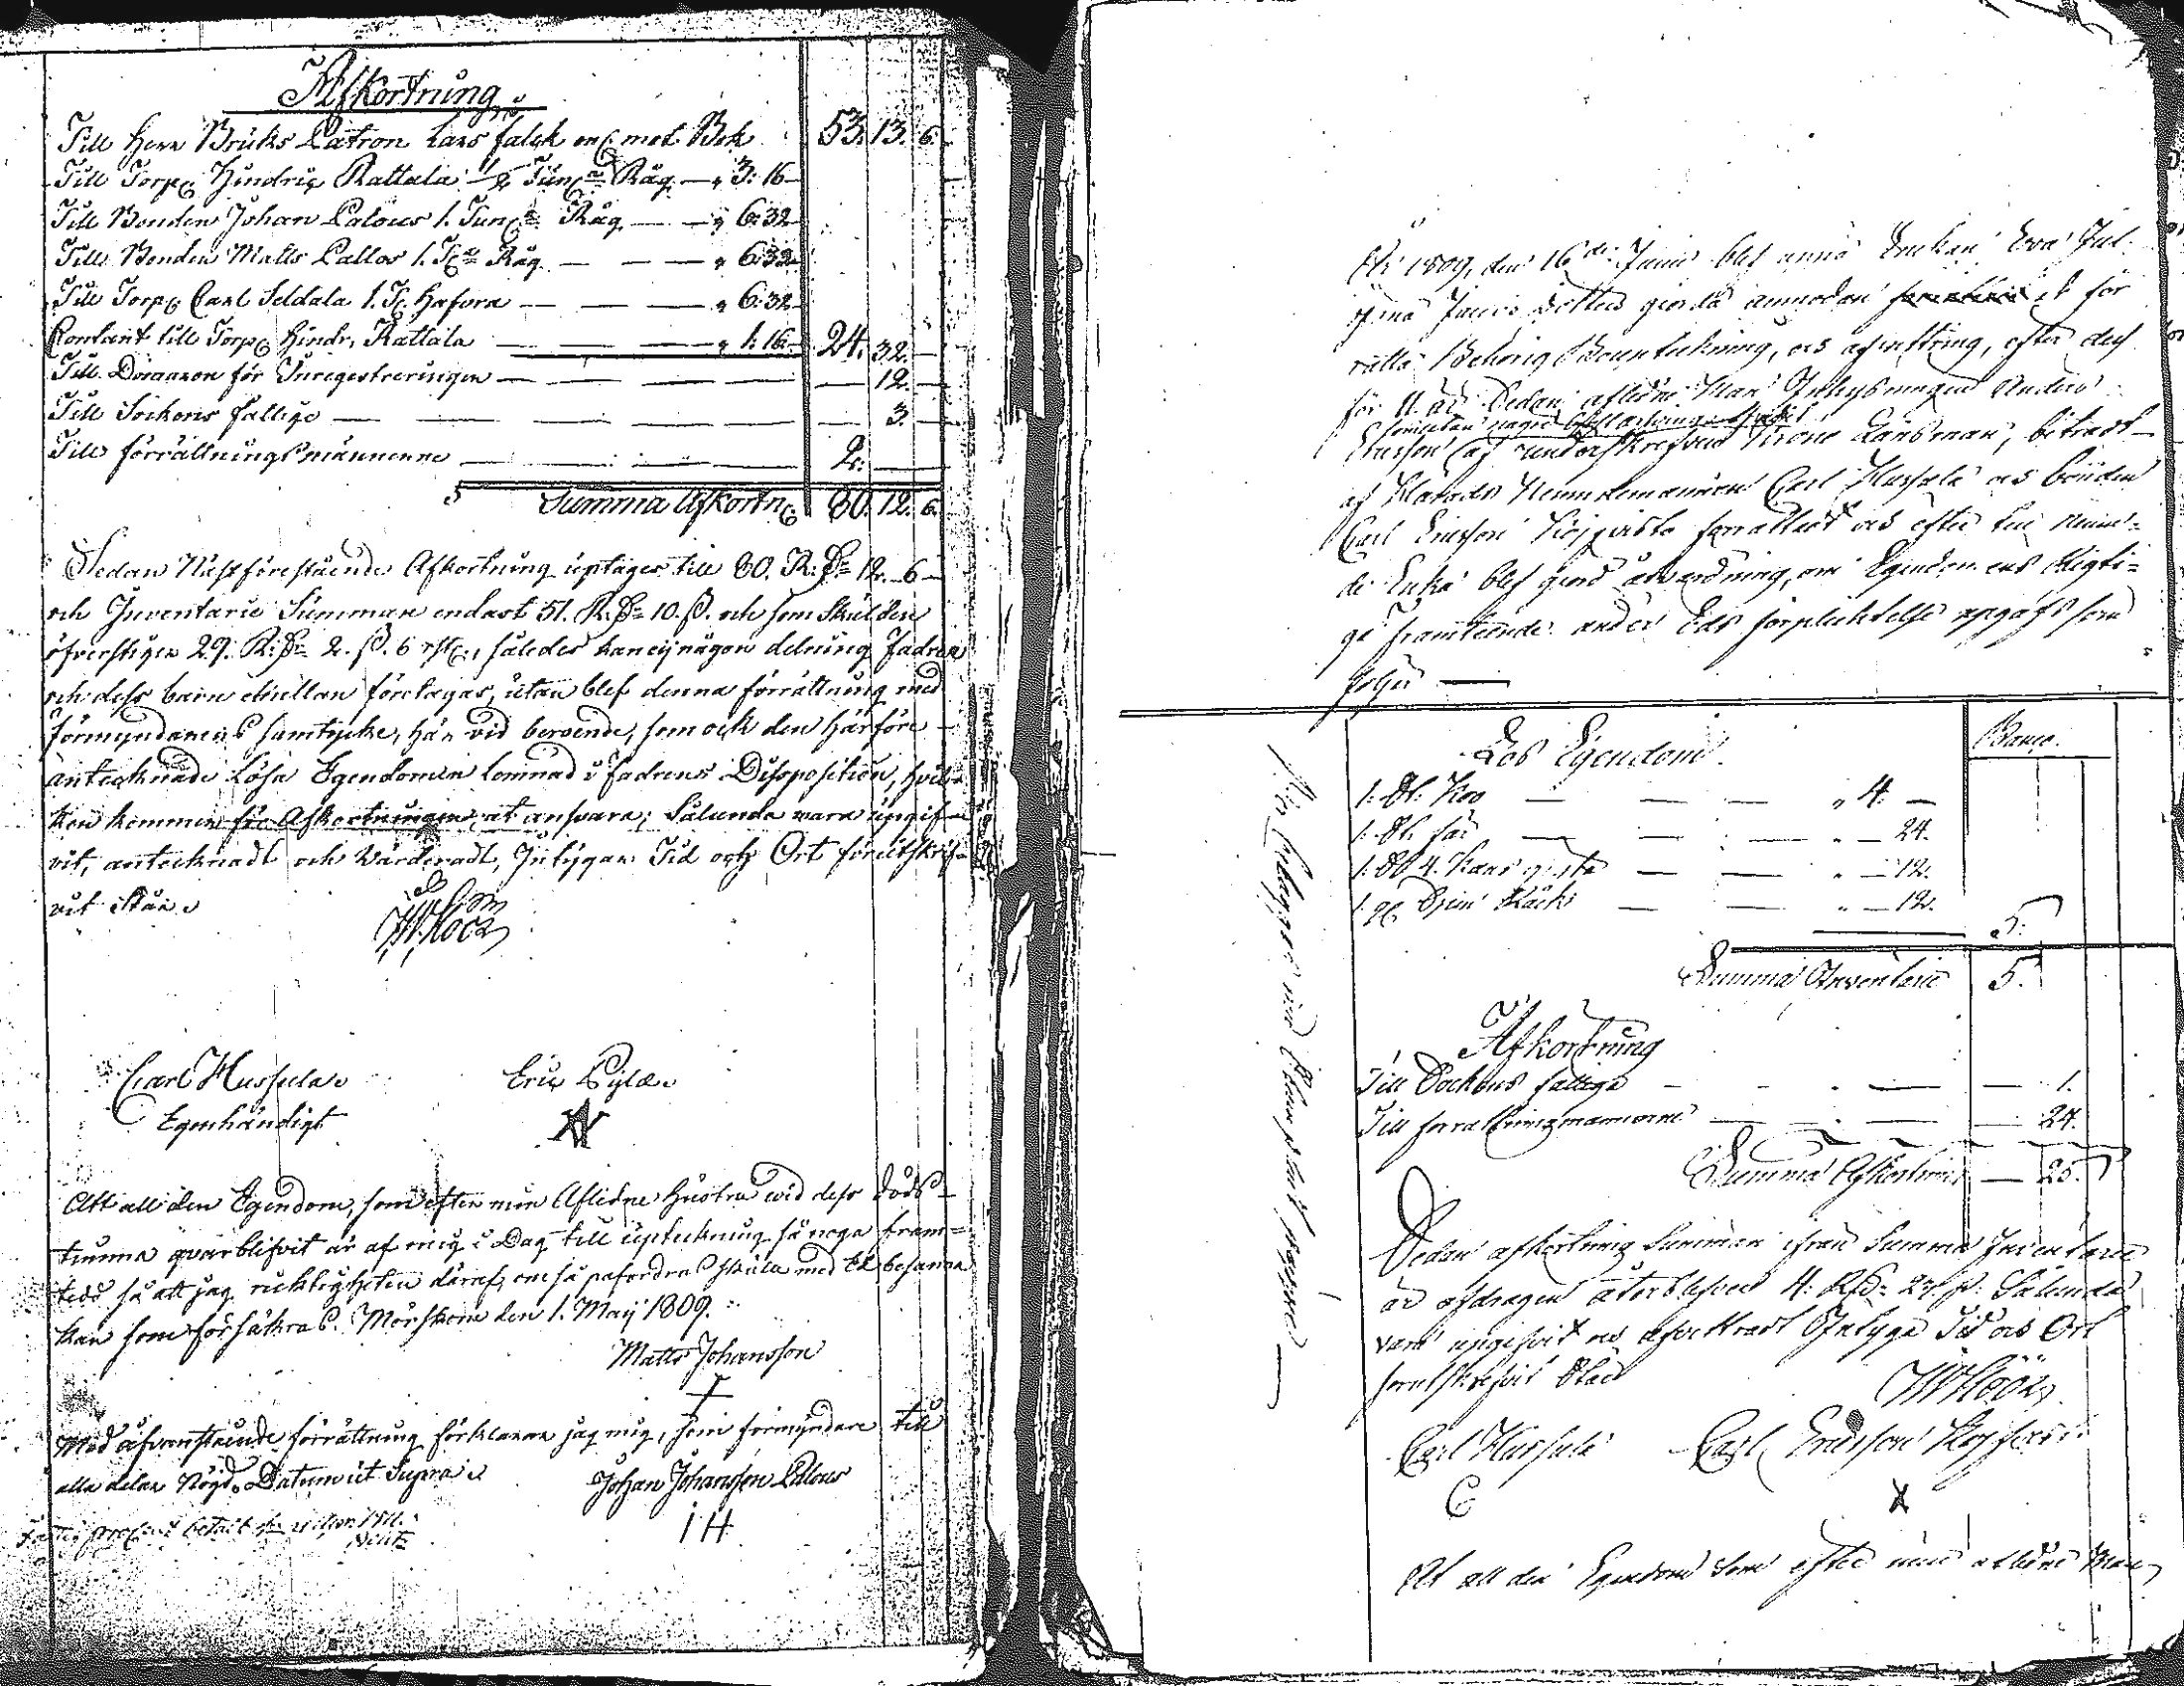 Afkortning
Till Herr Bruks Patron Lars Falck enl. not. Bok 53. 13. 6.
Till Torp. Hindric Rattala 1/2 Tun: Råg — „ 3: 16
Till Bonden Johan Palous 1. Tun: Råg — — „ 6: 32
Till Bonden Matts Pallos 1. T: Råg — — — „ 6: 32
Till Torp. Carl Seldala 1. T. Hafora — — — „ 6: 32
Contant till Torp. Hindr. Rattala — — — „ 1: 16 24. 32. —
Till Domaren för Inregistreringen — — — — — 12. —
Till Sockens fattige — — — — — 3. —
Till förrättningsmännerne — — — — 2. —
Summa Afkortn. 80. 12. 6.
Sedan Näst förestående Afkortning uptages till 80. R: Dr 12. 6
och Inventarii Summan endast 51. R: Dr 10. ß. och som skulden
öfverstiger 29. R: Dr 2. ß. 6 rst., således kan eij någon delning fadren
och dess barn emellan företagas, utan blef denna förrättning med
förmyndarens samtycke, här vid beroende, som ock den härföre
antecknade Lösa Egendomen lemnad i fadrens Disposition, hvil-
ken kommer för Afkortningen at ansvara; Sålunda vara upgif-
vit, antecknadt och Värderadt, Intygar Tid och Ort förutskrif-
vit står.
Carl Hussula Eric Pylä
Egenhändigt
Att all den Egendom, som efter min Aflidne Hustru vid dess döds-
timma qvarblifvit är af mig i Dag till upteckning så noga fram-
tedd så att jag richtigheten däraf, om så pafordras skulle med Ed besanna
kan som försäkras. Mörskom den 1. Maij 1809.
Matts Johansson
Med ofvanstående förrättning förklarar jag mig, som förmyndare till
alla delar Nögd. Datum ut Supra
Johan Johansson Palous
I H
År 1809, den 16de Junii blef uppå Enkan Eva
giorda anmodan at för
rätta Behörig Bouptekning, och afvittring, efter dess
för 11. år Sedan aflidne Man Inhysningen Anders
Ersson af undorskrefven Krono Länsman, biträdt
af Häradz Nemndemannen Carl Hussula och bonden
Carl Ericsson förrättat och efter
de Enka blef giord åtvarning, om Egendomens Rigti-
ge framteende under Eds förplicktelse upgafs som
följer —
Lös Egendom Banco.
1. St: Koo — — — „ 4. —
1. St. får — — — „ — 24.
— — „ — 12.
— — „ — 12.
5.
Summa Inventarie 5.
Afkortning
Till Sockens fattiga — — — — 1.
Till förrättningsmännerne — — — — 24.
Summa Afkortning — 25.
Sedan afkortning Summan ifrån Summa Inventarie
är afdragen återblifver 4: Rd: 23. ß: Sålunda
vara upgifvit och afvittrat Intyga Tid och Ort
förutskrefvit Står
Carl Hussula Carl Ericsson
C X
At all den Egendom som efter min aflidne Man